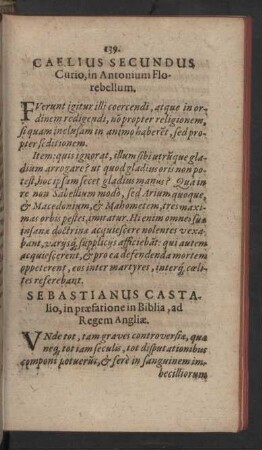 139.
CAELIUS SECUNDUS
Curio, in Antonium Flo-
rebellum.
FVerunt igitur illi coercendi, atque in or-
dinem redigendi, nõ propter religionem,
si quam inclusam in animo haberẽt, sed pro-
pter seditionem.
Item: quis ignorat, illum sibi utrũque gla-
dium arrogare? ut quod gladius oris non po-
test, hoc ipsam secet gladius manus? Qua in
re non Sabellium modo, sed Arium quoque,
& Macedonium, & Mahometem, tres maxi-
mas orbis pestes, imitatur. Hi enim omnes suæ
insanæ doctrinæ acquiescere nolentes vexa-
bant, varijsq́; supplicijs afficiebãt: qui autem
acquiescerent, & pro ea defendenda mortem
oppeterent, eos inter martyres, interq́; cæli-
tes referebant.
SEBASTIANUS CASTA-
lio, in præfatione in Biblia, ad
Regem Angliæ.
VNde tot, tam graves controversiæ, quæ
neq́, tot iam seculis, tot disputationibus
componi potuerũt, & ferè in sanguinem im-
becilliorum